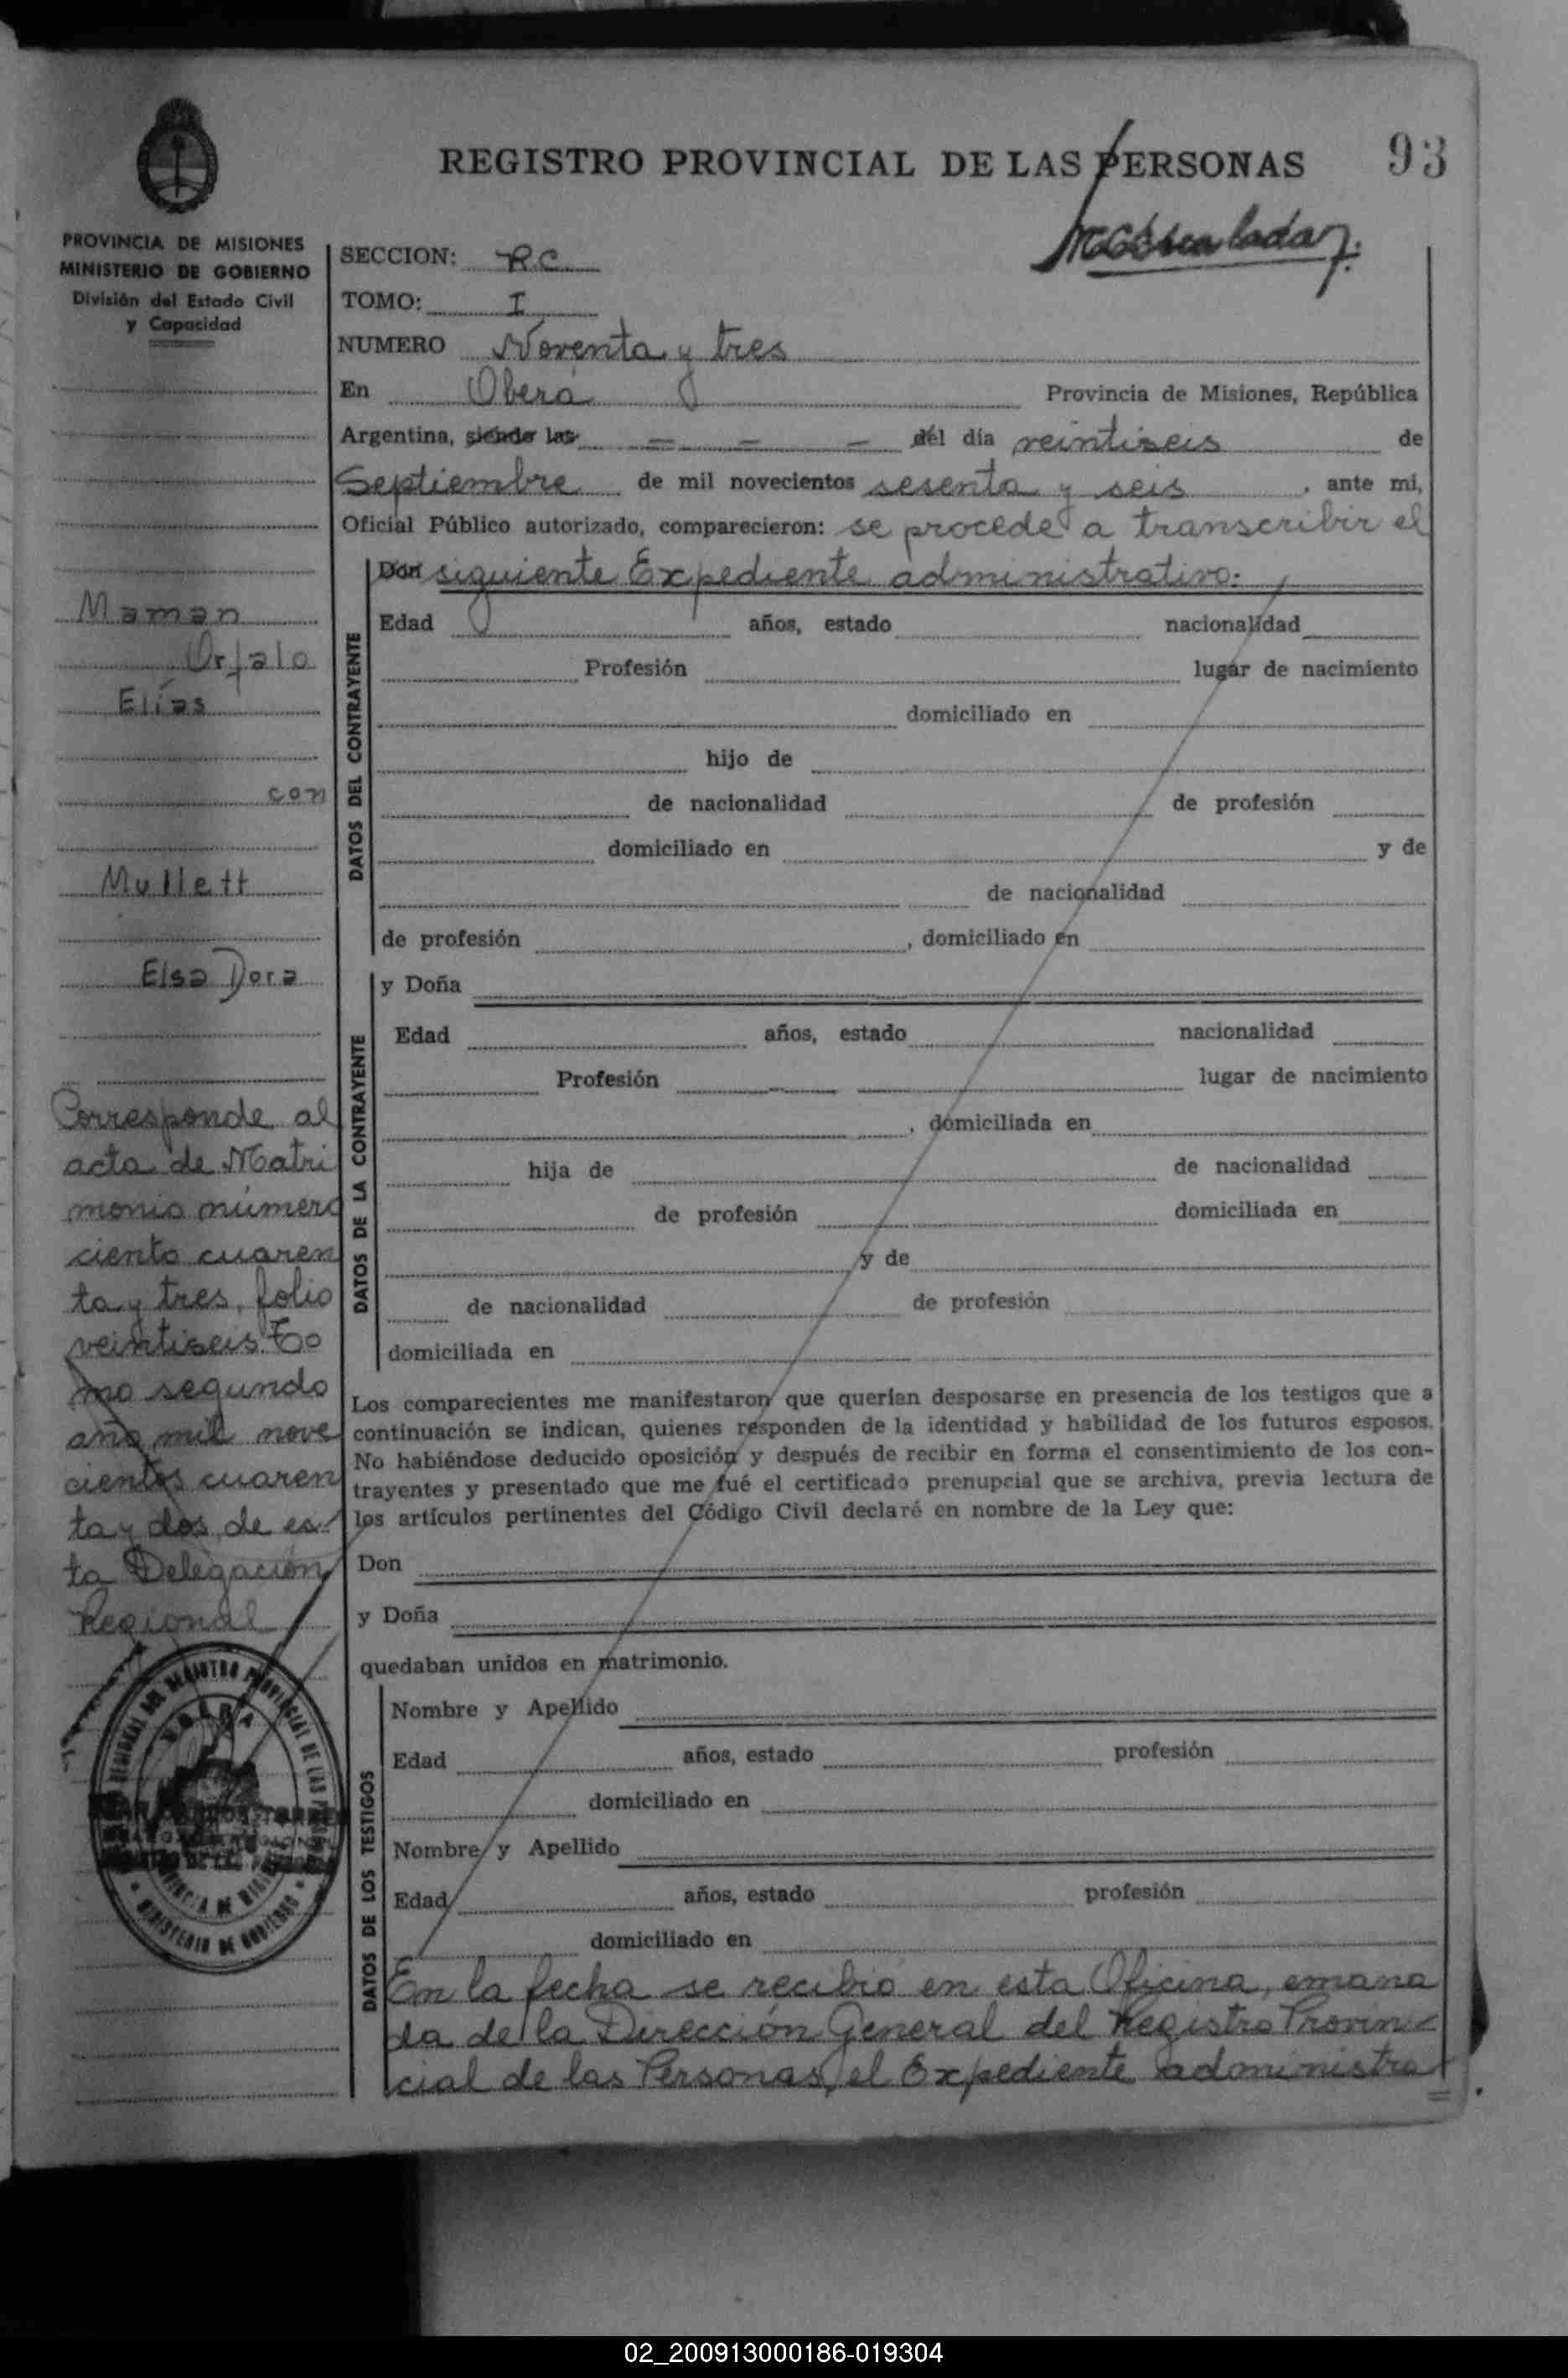 REGISTRO PROVINCIAL DE LAS PERSONAS 93
PROVINCIA DE MISIONES
MINISTERIO DE GOBIERNO
División del Estado Civil
y Capacidad
SECCION: RC
TOMO: I
NUMERO Noventa y tres
En Oberá Provincia de Misiones, República
Argentina, siendo las = = = del día veintiseis de
Septiembre de mil novecientos sesenta y seis, ante mi,
Oficial Público autorizado, comparecieron: se procede a transcribir el
Don siguiente Expediente administrativo:
Maman
Orfalo
Elías
con
Mullett
Elsa Dora
Corresponde al
acta de Matri
monio número
ciento cuaren
ta y tres, folio
veintiseis To
mo segundo
año mil nove
cientos cuaren
ta y dos de es
ta Delegación
Regional
DATOS DEL CONTRAYENTE
Edad años, estado nacionalidad
Profesión lugar de nacimiento
domiciliado en
hijo de
de nacionalidad de profesión
domiciliado en y de
de nacionalidad
de profesión , domiciliado en
DATOS DE LA CONTRAYENTE
y Doña
Edad años, estado nacionalidad
Profesión lugar de nacimiento
, domiciliada en
hija de de nacionalidad
de profesión domiciliada en
y de
de nacionalidad de profesión
domiciliada en
Los comparecientes me manifestaron que querían desposarse en presencia de los testigos que a
continuación se indican, quienes responden de la identidad y habilidad de los futuros esposos.
No habiéndose deducido oposición y después de recibir en forma el consentimiento de los con-
trayentes y presentado que me fué el certificado prenupcial que se archiva, previa lectura de
los artículos pertinentes del Código Civil declaré en nombre de la Ley que:
Don
y Doña
quedaban unidos en matrimonio.
DATOS DE LOS TESTIGOS
Nombre y Apellido
Edad años, estado profesión
domiciliado en
Nombre y Apellido
Edad años, estado profesión
domiciliado en
En la fecha se recibió en esta Oficina, emana
da de la Dirección General del Registro Provin-
cial de las Personas, el Expediente administra
=
OBERA
MINISTERIO DE GOBIERNO
02_200913000186-019304